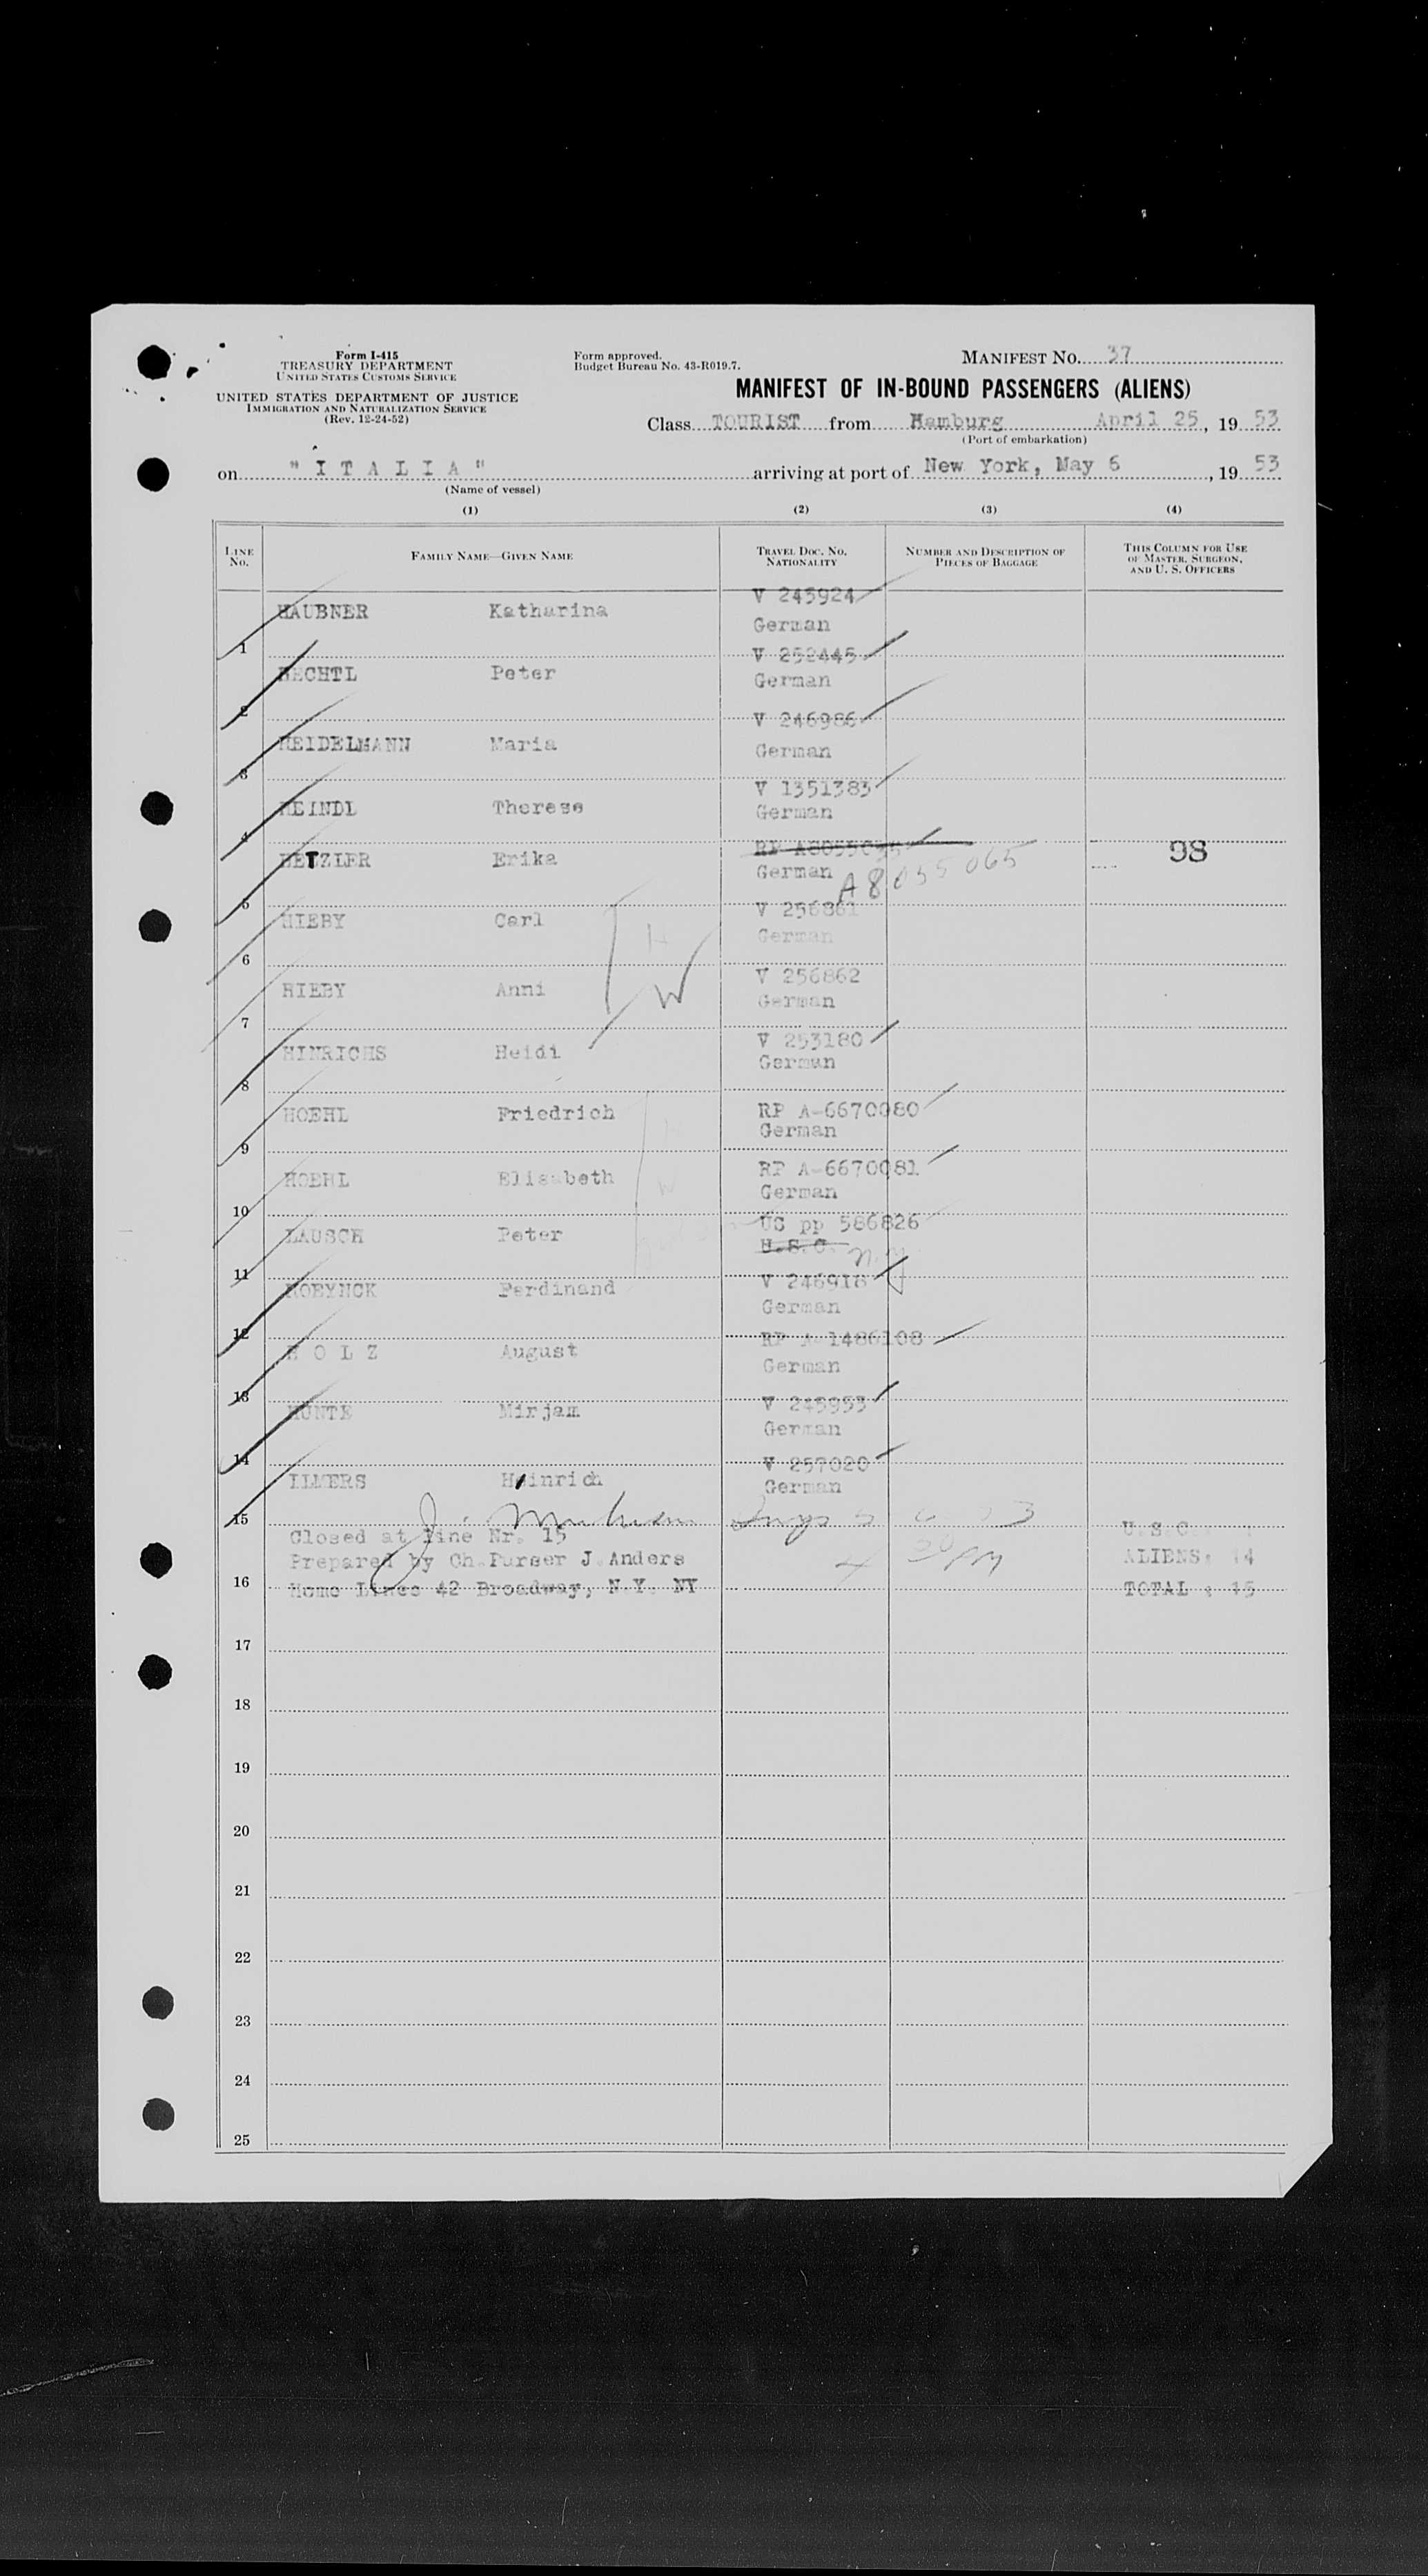 Form I-415
TREASURY DEPARTMENT
UNITED STATES CUSTOMS SERVICE
UNITED STATES DEPARTMENT OF JUSTICE
IMMIGRATION AND NATURALIZATION SERVICE
(Rev. 12-24-52)
Form approved.
Budget Bureau No. 43-R019.7.
MANIFEST NO. 37
MANIFEST OF IN-BOUND PASSENGERS (ALIENS)
Class TOURIST from Hamburg April 25, 19 53
(Port of embarkation)
on "I T A L I A" arriving at port of New York, May 6, 19 53
(Name of vessel)
(1) (2) (3) (4)
LINE NO. FAMILY NAME—GIVEN NAME TRAVEL DOC. NO. NATIONALITY NUMBER AND DESCRIPTION OF PIECES OF BAGGAGE THIS COLUMN FOR USE OF MASTER, SURGEON, AND U. S. OFFICERS
V 245924
HAUBNER Katharina German
1 V 252445
HECHTL Peter German
2 V 246986
HEIDELMANN Maria German
3 V 1351383
HEINDL Therese German
4 RP
HETZLER Erika German 98
A8055065
5 V 256861
HIEBY Carl German
H
W
6 V 256862
HIEBY Anni German
7 V 253180
HINRICHS Heidi German
8 RP A-6670080
HOEHL Friedrich German
9 RP A-6670081
HOEHL Elisabeth German
W
10 US pp 586826
LAUSCH Peter U.S.C.
11 V 246918
ROBYNCK Ferdinand German
12 RP A 1486108
H O L Z August German
13 V 245953
HUNTE Mirjam German
14 V 257020
ILMERS Heinrich German
15
Closed at Line Nr. 15 U.S.C.
Prepared by Ch.Purser J.Anders ALIENS: 14
4 30 PM
16 Home Lines 42 Broadway, N.Y. NY TOTAL : 15
17
18
19
20
21
22
23
24
25